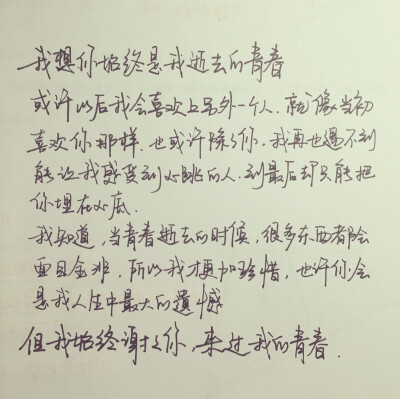 我想你始终是我逝去的青春
或许以后我会喜欢上另外一个人.就像当初
喜欢你那样.也或许除了你,我再也遇不到
能让我感受到心跳的人.到最后却只能把
你埋在心底.
我知道,当青春逝去的时候,很多东西都会
面目全非,所以我才更加珍惜,也许你会
是我人生中最大的遺憾
但我始终谢谢你,来过我的青春.